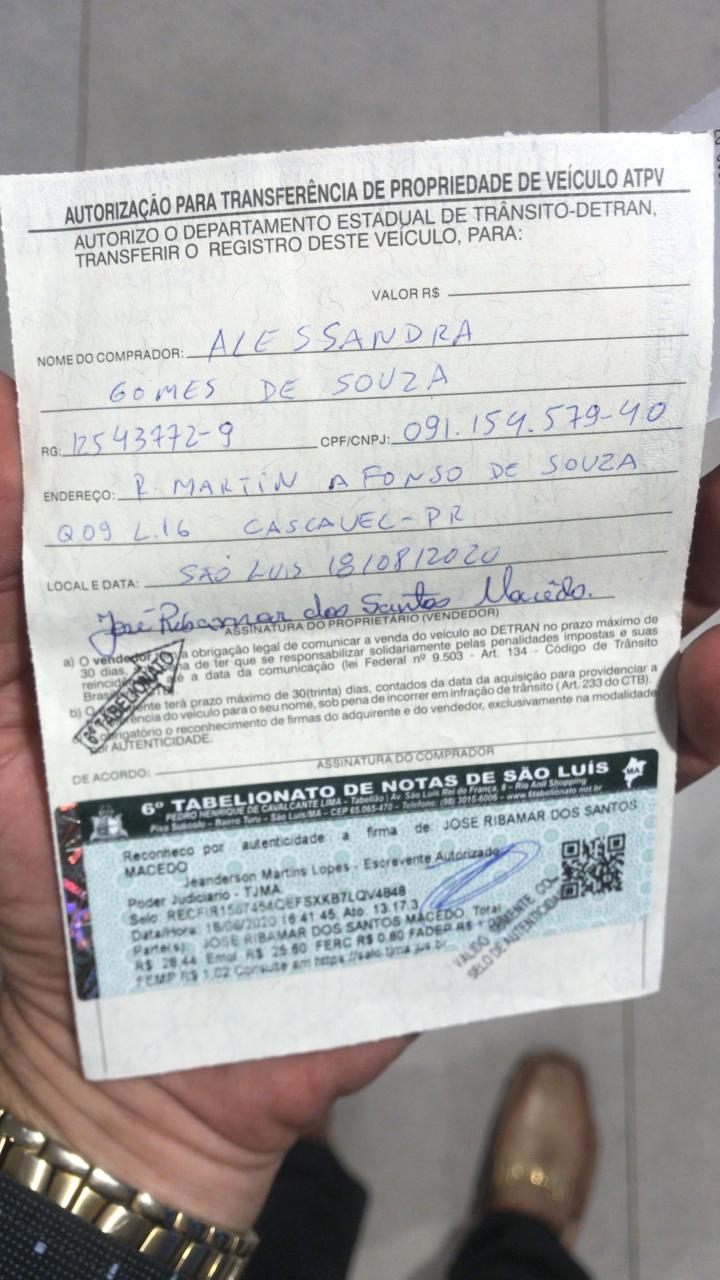 AUTORIZAÇÃO PARA TRANSFERÊNCIA DE PROPRIEDADE DE VEÍCULO ATPV
AUTORIZO O DEPARTAMENTO ESTADUAL DE TRÂNSITO-DETRAN,
TRANSFERIR O REGISTRO DESTE VEÍCULO, PARA:
VALOR R$
NOME DO COMPRADOR: ALESSANDRA
GOMES DE SOUZA
RG: 12543772-9 CPF/CNPJ: 091.154.579-40
ENDEREÇO: R. MARTIN AFONSO DE SOUZA
Q09 L.16 CASCAVEL-PR
LOCAL E DATA: SÃO LUIS 18/08/2020
José Ribamar dos Santos Macêdo.
ASSINATURA DO PROPRIETÁRIO (VENDEDOR)
a) O vendedor a obrigação legal de comunicar a venda do veículo ao DETRAN no prazo máximo de
30 dias, na de ter que se responsabilizar solidariamente pelas penalidades impostas e suas
reincid até a data da comunicação (lei Federal nº 9.503 - Art. 134 - Código de Trânsito
Brasil
6º TABELIONATO
b) O ente terá prazo máximo de 30(trinta) dias, contados da data da aquisição para providenciar a
rência do veículo para o seu nome, sob pena de incorrer em infração de trânsito (Art. 233 do CTB).
obrigatório o reconhecimento de firmas do adquirente e do vendedor, exclusivamente na modalidade
por AUTENTICIDADE.
DE ACORDO:
ASSINATURA DO COMPRADOR
6º TABELIONATO DE NOTAS DE SÃO LUÍS
MA
PEDRO HENRIQUE DE CAVALCANTE LIMA - Tabelião | Av. São Luís Rei de França, 8 - Rio Anil Shopping
Piso Subsolo - Bairro Turu - São Luís/MA - CEP 65.065-470 - Telefone: (98) 3015-6006 - www.6tabelionato.not.br
Reconheço por autenticidade a firma de: JOSE RIBAMAR DOS SANTOS
MACEDO
Jeanderson Martins Lopes - Escrevente Autorizado
Poder Judiciário - TJMA.
Selo: RECFIR1567454QEFSXKB7LQV4848
Data/Hora: 18/08/2020 16:41:45, Ato: 13.17.3,
Parte(s): JOSE RIBAMAR DOS SANTOS MACEDO, Total
R$ 28.44 Emol R$ 25.60 FERC R$ 0.80 FADEP R$
FEMP R$ 1.02 Consulte em https://selo.tjma.jus.br
VALIDO SOMENTE COM
SELO DE AUTENTICIDADE